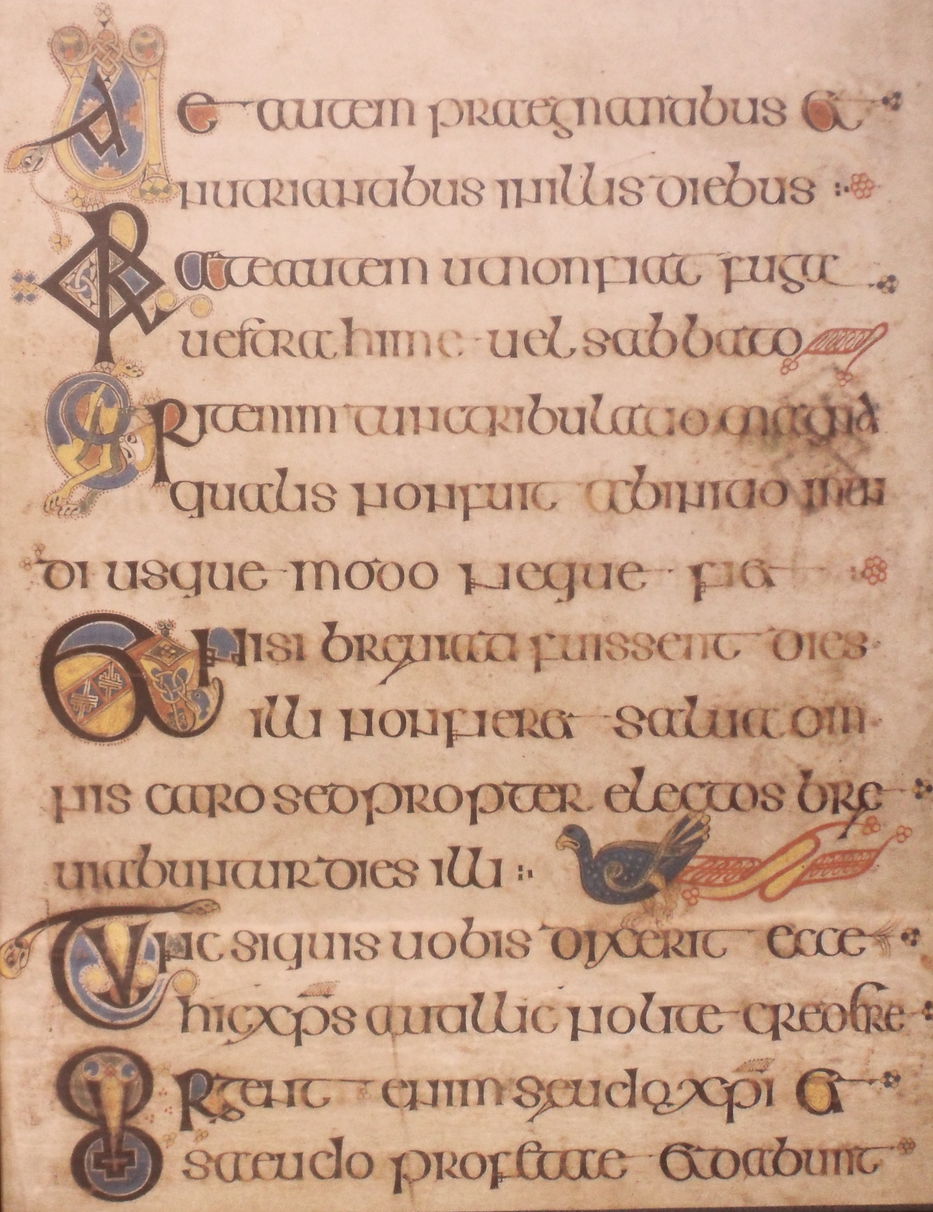 Uae autem praegnantibus et
nutriantibus in illis diebus :
Orate autem ut non fiat fuga
uestra hime uel sabbato
Erit enim tunc tribulatio magna
qualis non fuit ab initio mun
di usque modo neque fiet
Et nisi breuiata fuissent dies
illi non fieret salua om
nis caro sed propter electos bre
uiabuntur dies illi :
Tunc si quis uobis dixerit ecce
hic xp̄s aut illic nolite credere
Surgent enim seudo xp̄i et
saeudo profetae et dabunt